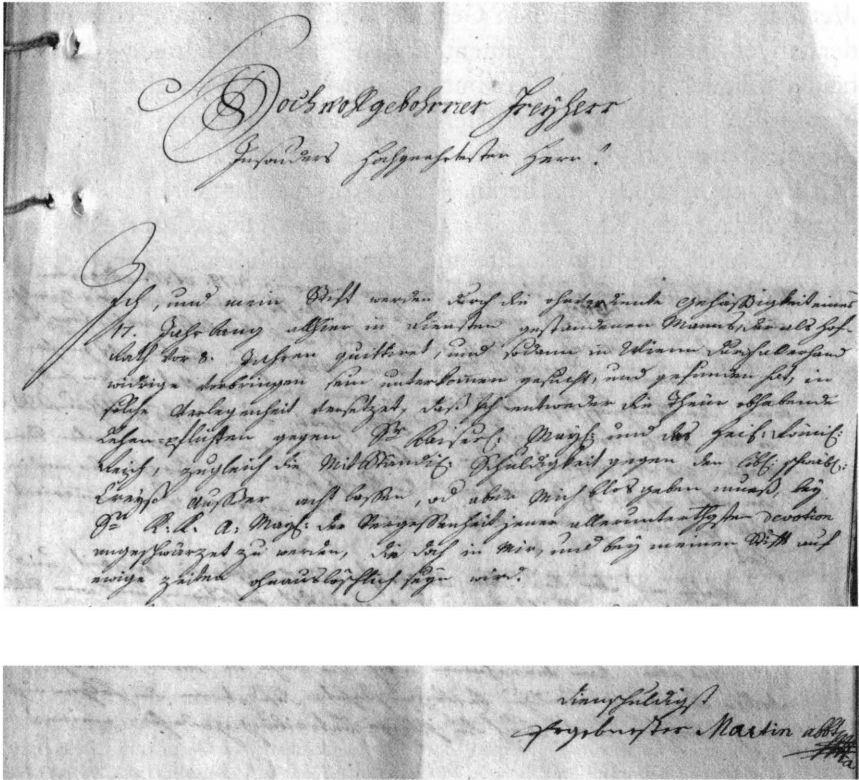 Hochwohlgebohrner Freyherr
Insonders Hochgeehrtester Herr!
Ich, und mein Stift werden durch die ohnverdiente Gehäßigkeit eines
17. Jahr lang allhier in Diensten gestandenen Manns, der als Hof-
Rath vor 8. Jahren quittiret, und sodann in Wienn durch allerhand
widrige Verbringen sein unterkommen gesucht, und gefunden hat, in
solche Verlegenheit versetzet, daß Ich entweder die Theur obhabende
Lehen-pflichten gegen Sr Kaiserl: Mayt: und das Heil: Römis:
Reich, zugleich die Mitständis: Schuldigkeit gegen den löbl: schwäb:
Creyß ausser acht lassen, od aber mich blos geben mueß, bey
Sr K. K. A: Mayt: der Vergessenheit jener allerunterthgsten Devotion
angeschwärzet zu werden, die doch in mir, und bey meinem Stift auf
ewige Zeiten ohnauslöschlich seyn wird.
dienschuldigst
Ergebenster Martin abbt